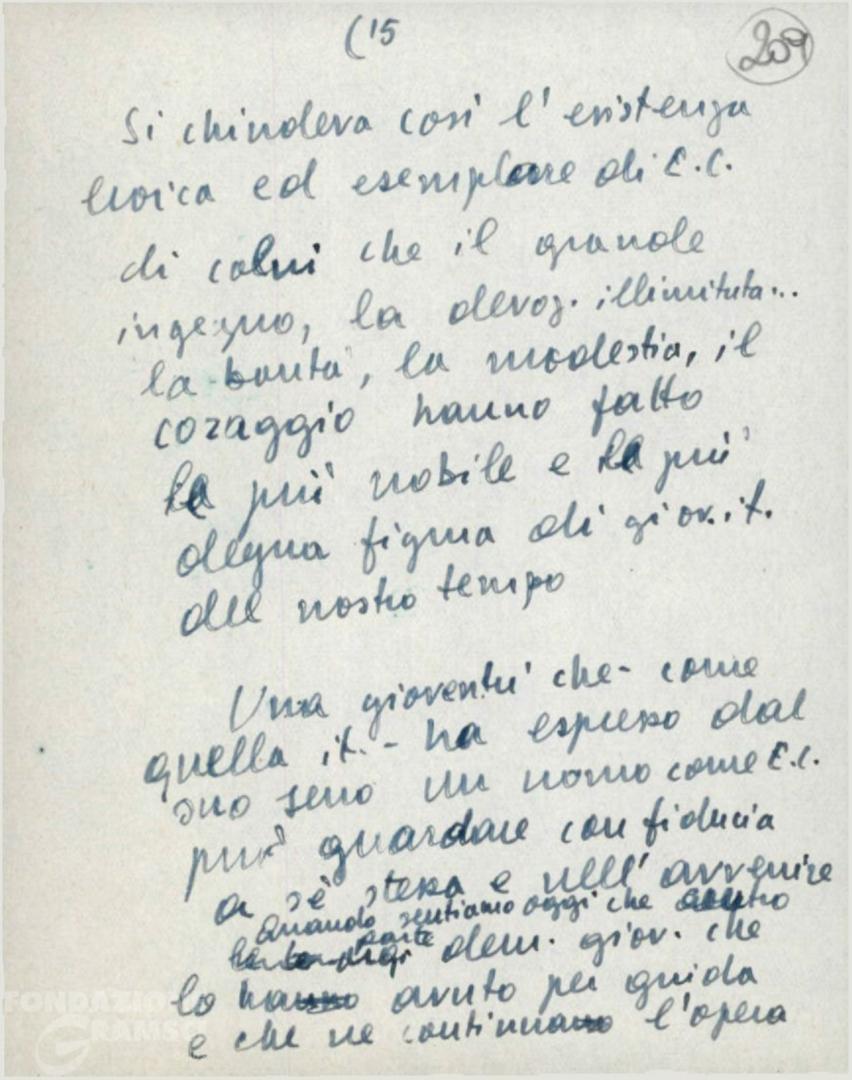 (15
209
Si chiudeva così l'esistenza
eroica ed esemplare di E.C.
di colui che il grande
ingegno, la devoz. illimitata...
la bontà, la modestia, il
coraggio hanno fatto
la più nobile e la più
degna figura di giov. it.
del nostro tempo
Una gioventù che - come
quella it. - ha espresso dal
suo seno un uomo come E.C.
può guardare con fiducia
a sè stessa e nell'avvenire
Quando sentiamo oggi che
parte
dem. giov. che
lo ha avuto per guida
e che ne continua l'opera
FONDAZIONE
GRAMSCI